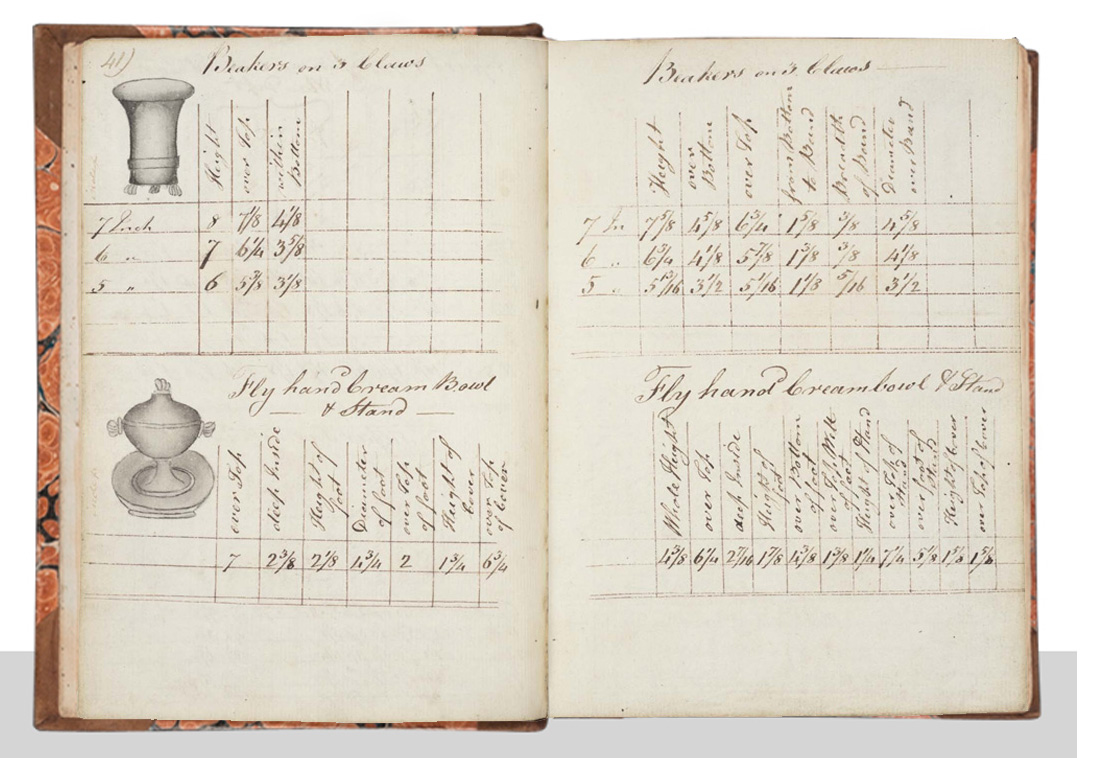 41)
Beakers on 3 Claws
Height
over Top
within Bottom
7 Inch 8 7 1/8 4 1/8
6 " 7 6 1/4 3 5/8
5 " 6 5 3/8 3 1/8
Fly hand Cream Bowl
& Stand
over Top
deep Inside
Height of foot
Diameter of foot
over Top of foot
Height of Cover
over Top of Cover
7 2 3/8 2 1/8 4 3/4 2 1 3/4 6 3/4
Beakers on 3 Claws
Height
over Bottom
over Top
from Bottom to Band
Breadth of Band
Diameter over Band
7 In 7 5/8 4 5/8 6 3/4 1 5/8 3/8 4 5/8
6 " 6 3/4 4 1/8 5 7/8 1 3/8 3/8 4 1/8
5 " 5 13/16 3 1/2 5 1/16 1 1/8 5/16 3 1/2
Fly hand Creambowl & Stand
Whole Height
over Top
deep Inside
Height of foot
over Bottom of foot
over Top of foot
Height of Stand
over Top of Stand
over foot of Stand
Height of Cover
over Top of Cover
4 3/8 6 1/4 2 7/16 1 7/8 4 3/8 1 3/8 1 1/4 7 1/4 5 1/8 1 5/8 1 5/8